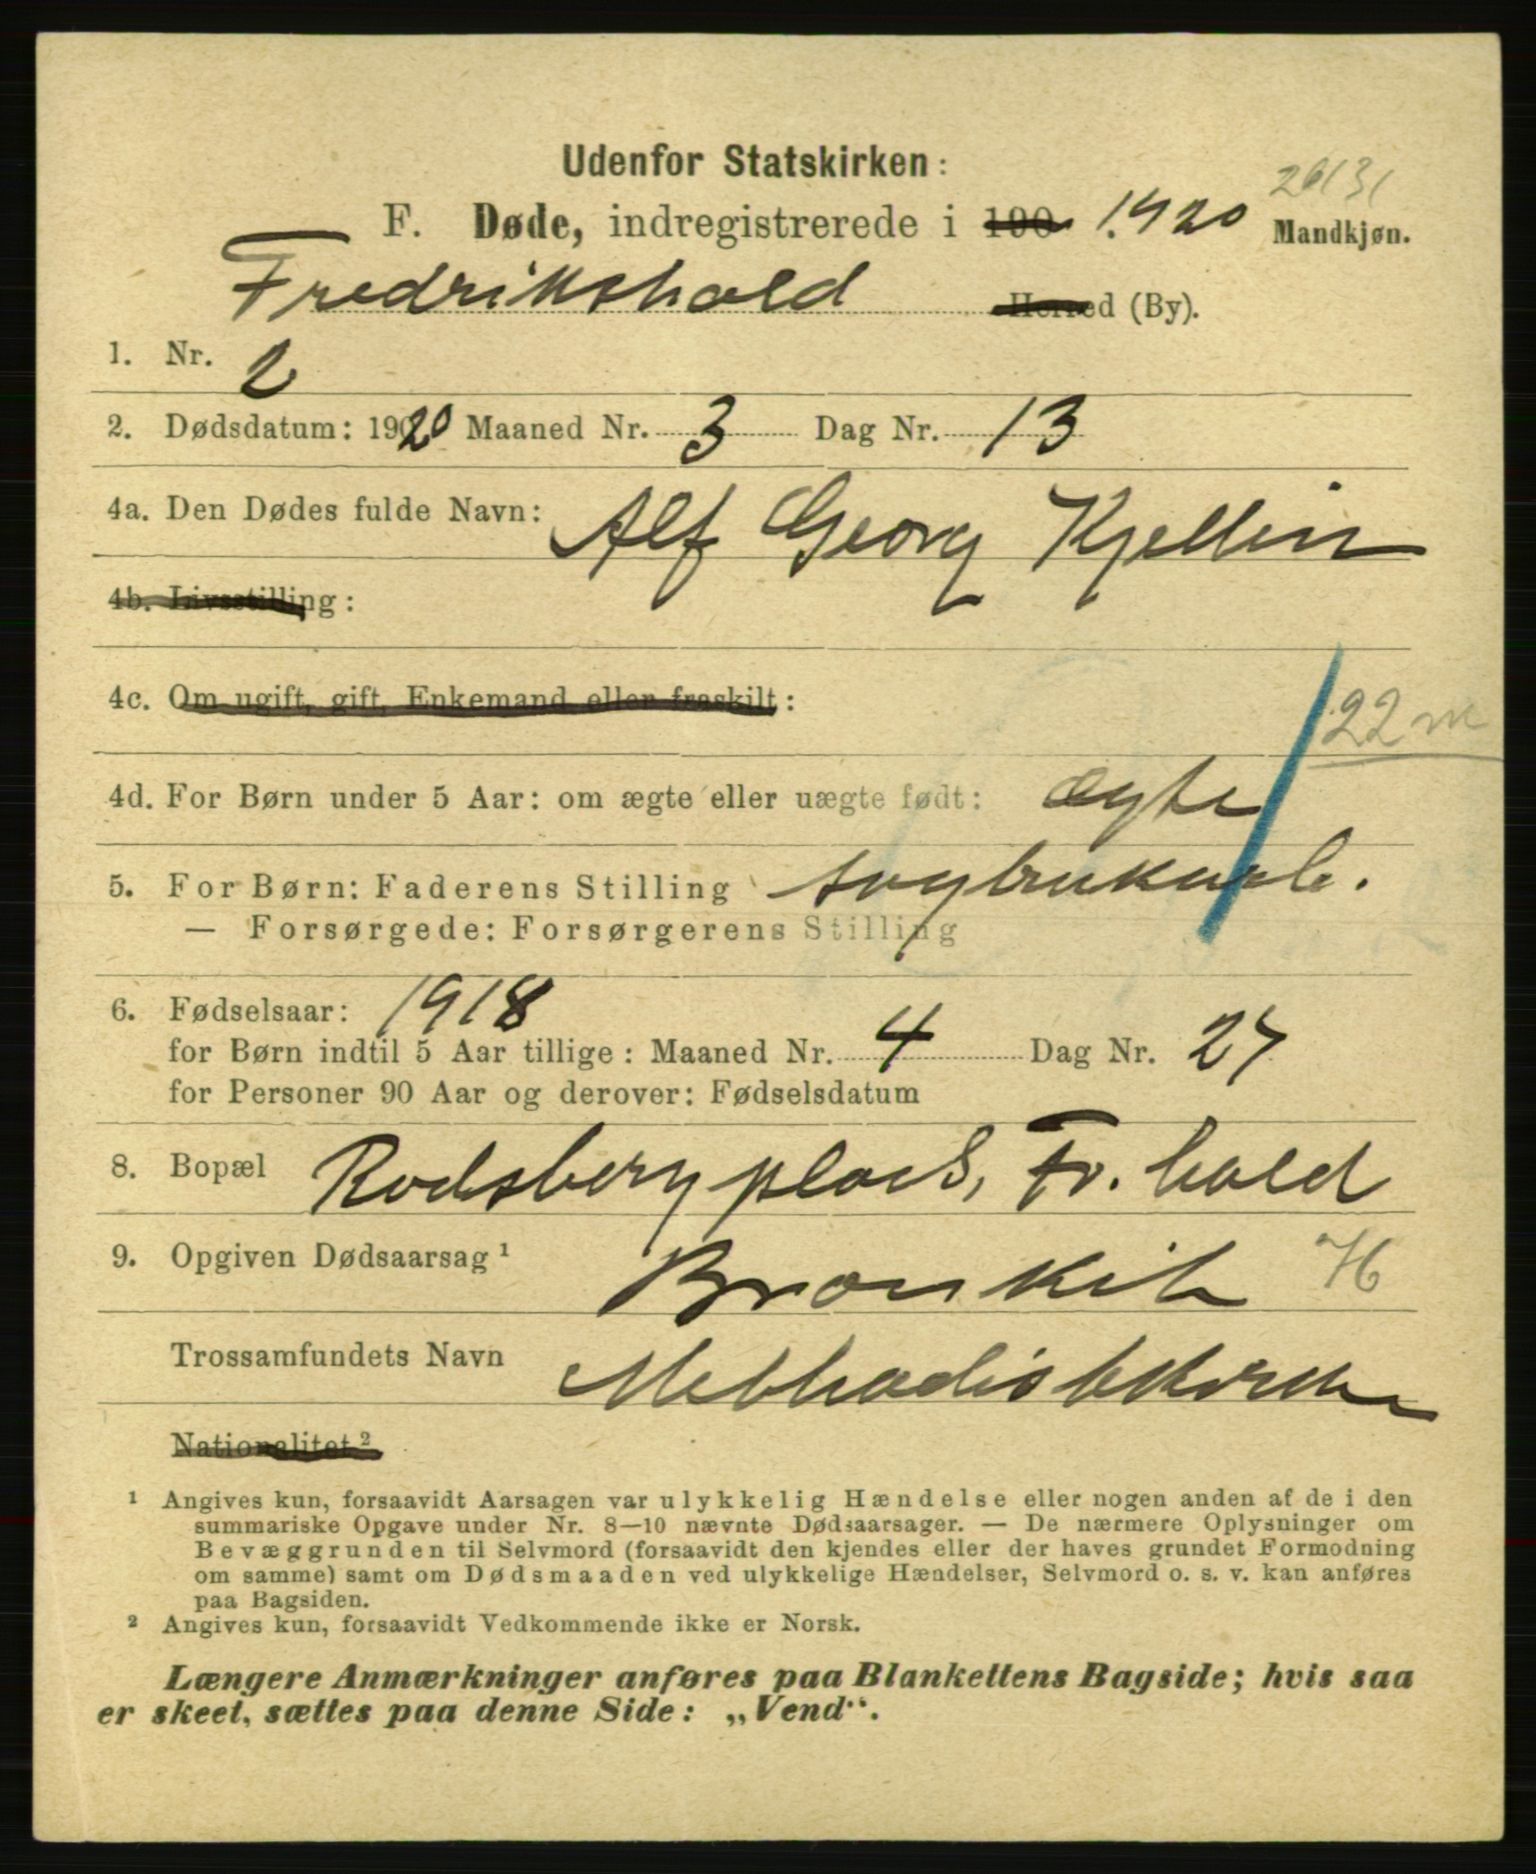 Udenfor Statskirken:
26131
F. Døde, indregistrerede i 190 1920 Mandkjøn.
Fredrikshald Herred (By).
1. Nr. 2
2. Dødsdatum: 1920 Maaned Nr. 3 Dag Nr. 13
4a. Den Dødes fulde Navn: Alf Georg Kjellin
4b. Livsstilling:
4c. Om ugift, gift, Enkemand eller fraskilt:
22 m
4d. For Børn under 5 Aar: om ægte eller uægte født: ægte
5. For Børn: Faderens Stilling
— Forsørgede: Forsørgerens Stilling
6. Fødselsaar: 1918
for Børn indtil 5 Aar tillige: Maaned Nr. 4 Dag Nr. 27
for Personer 90 Aar og derover: Fødselsdatum
8. Bopæl Rødsberg plads, Fr.hald
9. Opgiven Dødsaarsag ¹ Bronkit 76
Trossamfundets Navn Methodistkirken
Nationalitet ²
¹ Angives kun, forsaavidt Aarsagen var ulykkelig Hændelse eller nogen anden af de i den
summariske Opgave under Nr. 8—10 nævnte Dødsaarsager. — De nærmere Oplysninger om
Bevæggrunden til Selvmord (forsaavidt den kjendes eller der haves grundet Formodning
om samme) samt om Dødsmaaden ved ulykkelige Hændelser, Selvmord o. s. v. kan anføres
paa Bagsiden.
² Angives kun, forsaavidt Vedkommende ikke er Norsk.
Længere Anmærkninger anføres paa Blankettens Bagside; hvis saa
er skeet, sættes paa denne Side: „Vend“.